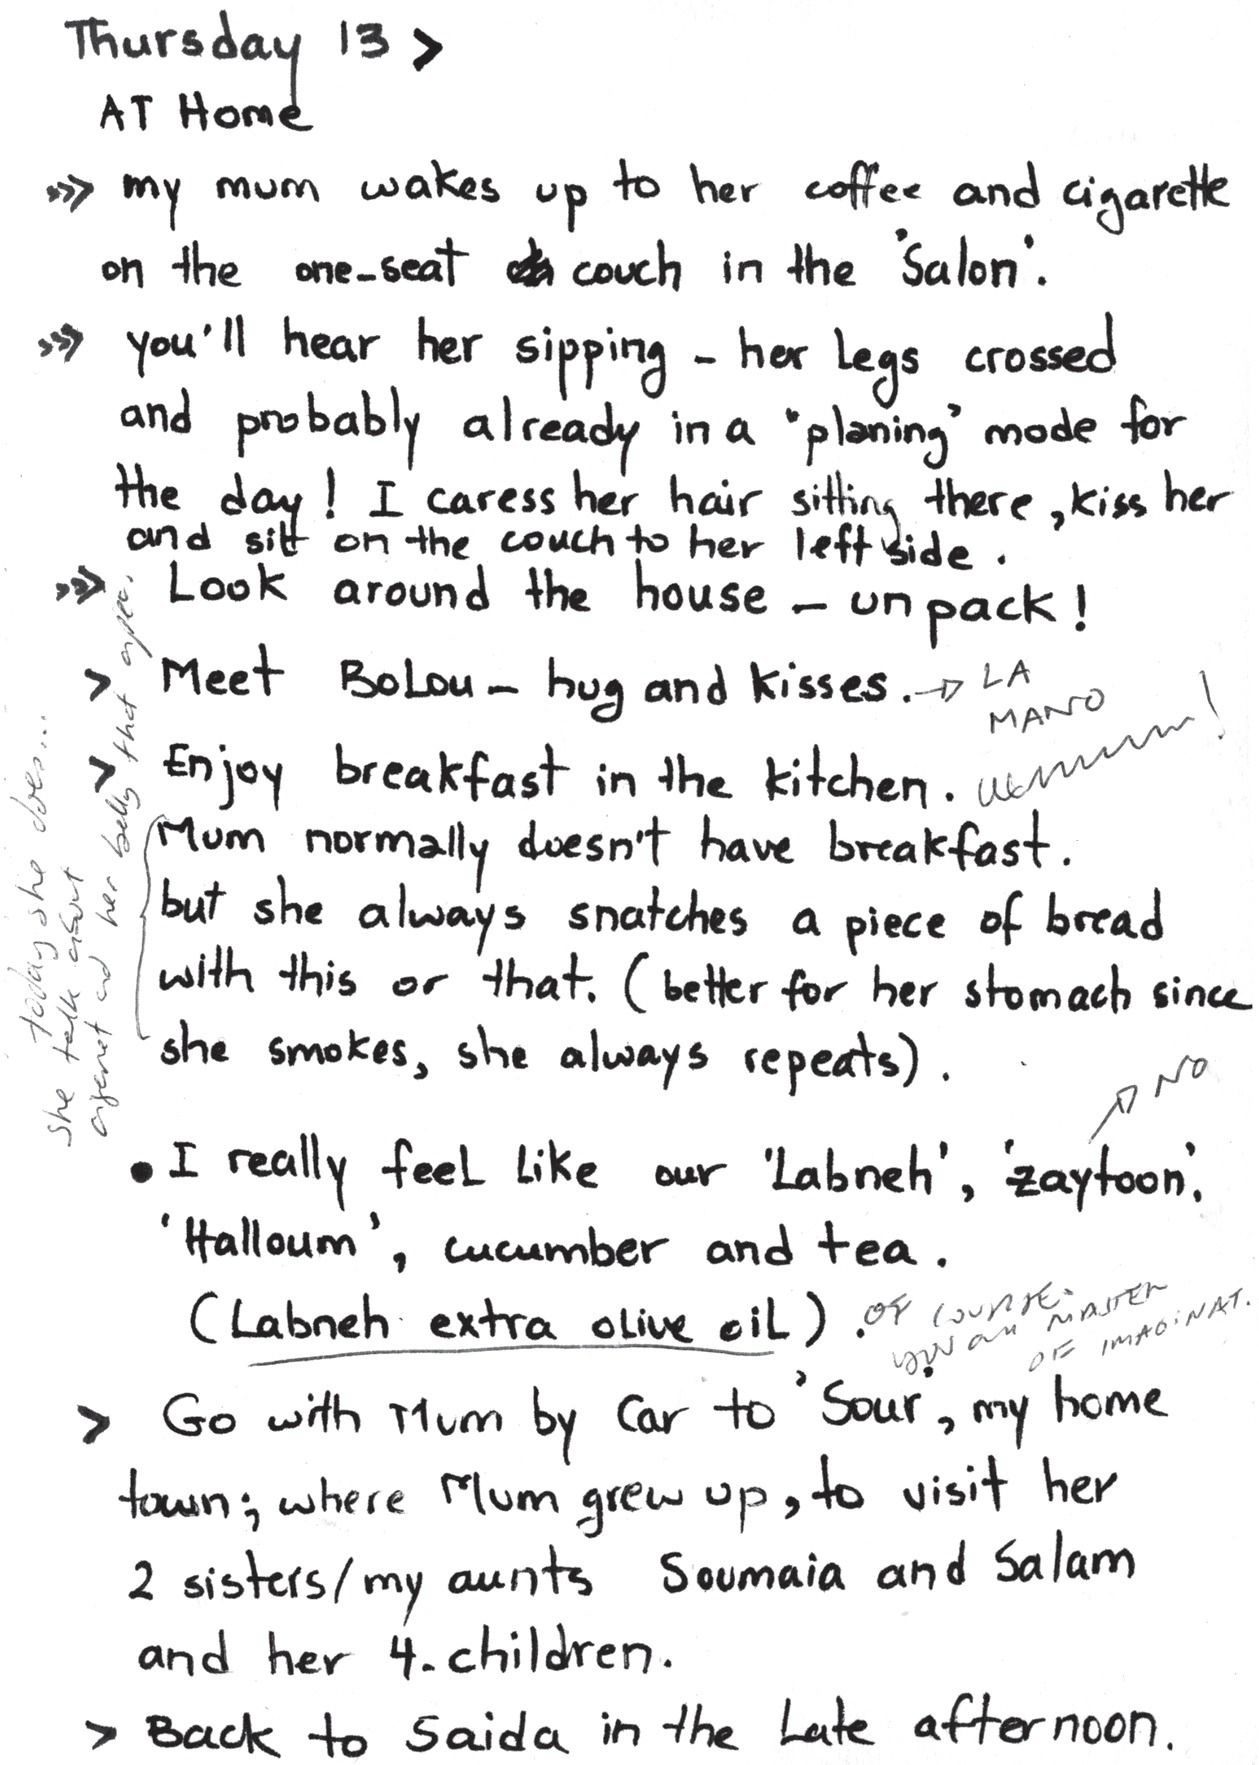 Thursday 13 >
AT Home
my mum wakes up to her coffee and cigarette
on the one-seat couch in the 'Salon'.
you'll hear her sipping - her legs crossed
and probably already in a "planing" mode for
the day! I caress her hair sitting there, kiss her
and sitt on the couch to her left side.
Look around the house - unpack!
> Meet BoLou - hug and kisses. → LA
MANO
> Enjoy breakfast in the kitchen.
Mum normally doesn't have breakfast.
but she always snatches a piece of bread
with this or that. (better for her stomach since
she smokes, she always repeats).
today she does...
She talk about
and her belly that
NO
• I really feel Like our 'Labneh', 'zaytoon',
'Halloum', cucumber and tea.
(Labneh extra olive oil).
OF COURSE.
YOU MASTER
OF IMAGINAT.
> Go with Mum by Car to 'Sour', my home
town; where Mum grew up, to visit her
2 sisters/my aunts Soumaia and Salam
and her 4-children.
> Back to Saida in the Late afternoon.